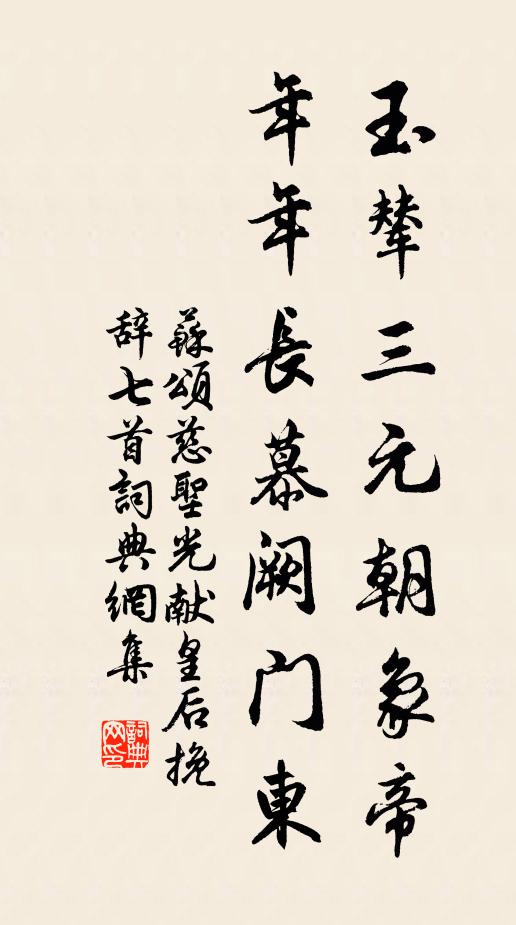 玉輦三元朝象帝
年年長慕闕門東
蘇頌慈聖光献皇后挽
辞七首詞典網集
詞典
网印